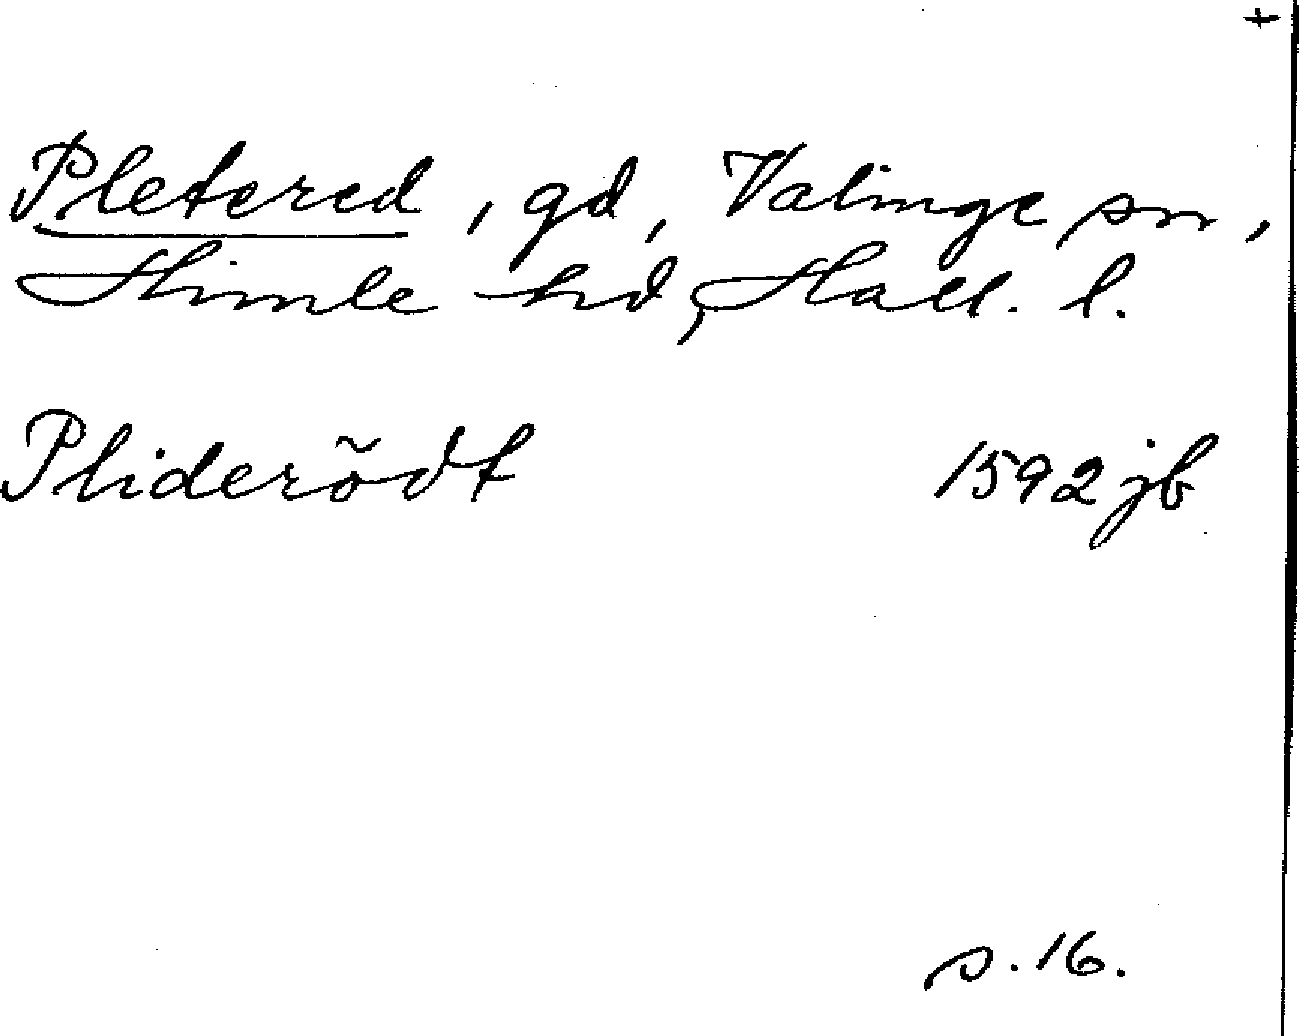 +
Pletered, gd, Valinge sn,
Himle hd, Hall. l.
Pliderõdt 1592 jb
s. 16.